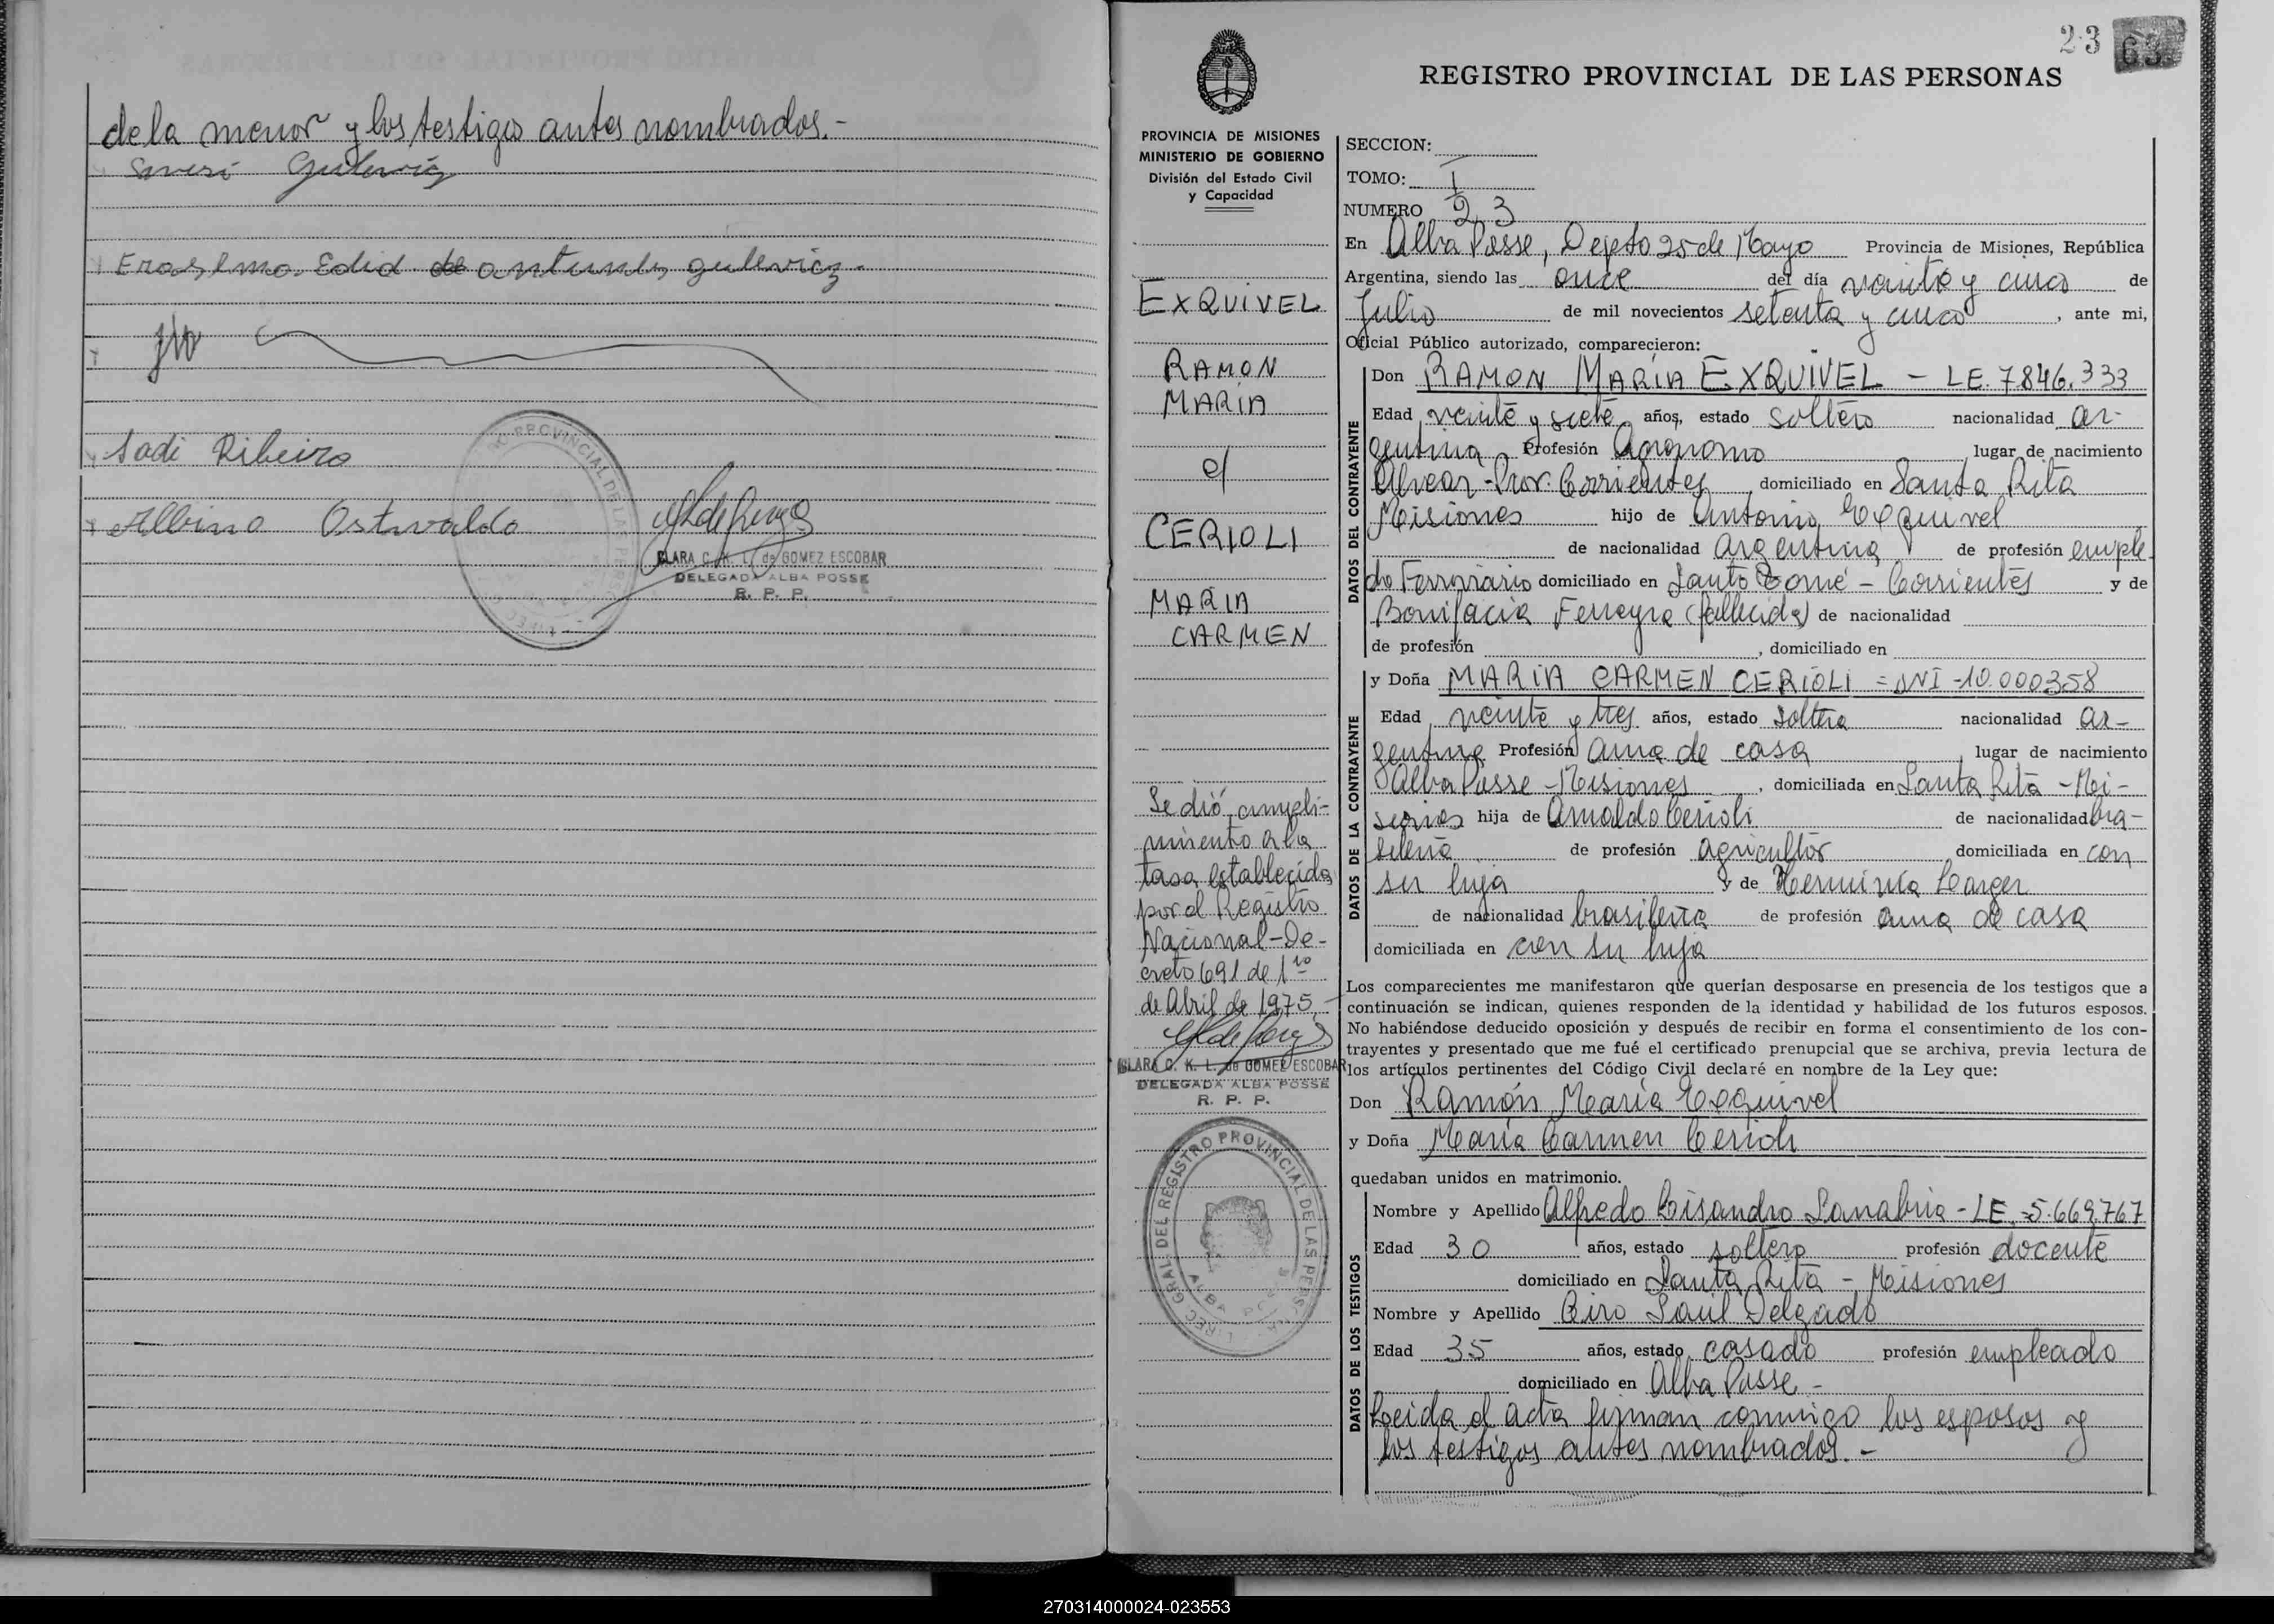 de la menor y los testigos antes nombrados.-
Gulewicz
Erasemo Edid de antunes gulewicz.
Sadi Ribeiro
Albino Ostwaldo
CLARA C. K. L. de GOMEZ ESCOBAR
DELEGADA ALBA POSSE
R. P. P.
23
63
REGISTRO PROVINCIAL DE LAS PERSONAS
PROVINCIA DE MISIONES
MINISTERIO DE GOBIERNO
División del Estado Civil
y Capacidad
EXQUIVEL
RAMON
MARIA
c/
CERIOLI
MARIA
CARMEN
Se dió cumpli-
miento a la
tasa establecida
por el Registro
Nacional-De-
creto 691 de 1ro
de Abril de 1975.-
CLARA C. K. L. de GOMEZ ESCOBAR
DELEGADA ALBA POSSE
R. P. P.
DIREC. GRAL. DEL REGISTRO PROVINCIAL DE LAS PERSONAS
ALBA POSSE
SECCION:
TOMO: I
NUMERO 23
En Alba Posse, Depto 25 de Mayo Provincia de Misiones, República
Argentina, siendo las once del día veinte y cinco de
Julio de mil novecientos setenta y cinco, ante mi,
Oficial Público autorizado, comparecieron:
DATOS DEL CONTRAYENTE
Don RAMON MARIA EXQUIVEL - LE. 7846.333
Edad veinte y siete años, estado soltero nacionalidad ar-
gentina Profesión Agronomo lugar de nacimiento
Alvear-Prov. Corrientes, domiciliado en Santa Rita
Misiones hijo de Antonio Exquivel
de nacionalidad argentina de profesión emplea
do Ferroviario domiciliado en Santo Tomé - Corrientes y de
Bonifacia Ferreyra (fallecida) de nacionalidad
de profesión , domiciliado en
DATOS DE LA CONTRAYENTE
y Doña MARIA CARMEN CERIOLI = DNI -10.000358
Edad veinte y tres años, estado soltera nacionalidad ar-
gentina Profesión ama de casa lugar de nacimiento
Alba Posse - Misiones, domiciliada en Santa Rita - Mi-
siones hija de Arnaldo Cerioli de nacionalidad bra-
sileña de profesión agricultor domiciliada en con
su hija y de Herminia Carger
de nacionalidad brasileña de profesión ama de casa
domiciliada en con su hija
Los comparecientes me manifestaron que querían desposarse en presencia de los testigos que a
continuación se indican, quienes responden de la identidad y habilidad de los futuros esposos.
No habiéndose deducido oposición y después de recibir en forma el consentimiento de los con-
trayentes y presentado que me fué el certificado prenupcial que se archiva, previa lectura de
los artículos pertinentes del Código Civil declaré en nombre de la Ley que:
Don Ramón María Exquivel
y Doña María Carmen Cerioli
quedaban unidos en matrimonio.
DATOS DE LOS TESTIGOS
Nombre y Apellido Alfredo Lisandro Sanabria - LE =5.669.767
Edad 30 años, estado soltero profesión docente
domiciliado en Santa Rita - Misiones
Nombre y Apellido Ciro Saúl Delgado
Edad 35 años, estado casado profesión empleado
domiciliado en Alba Posse -
Leida el acta firman conmigo los esposos y
los testigos antes nombrados.-
270314000024-023553